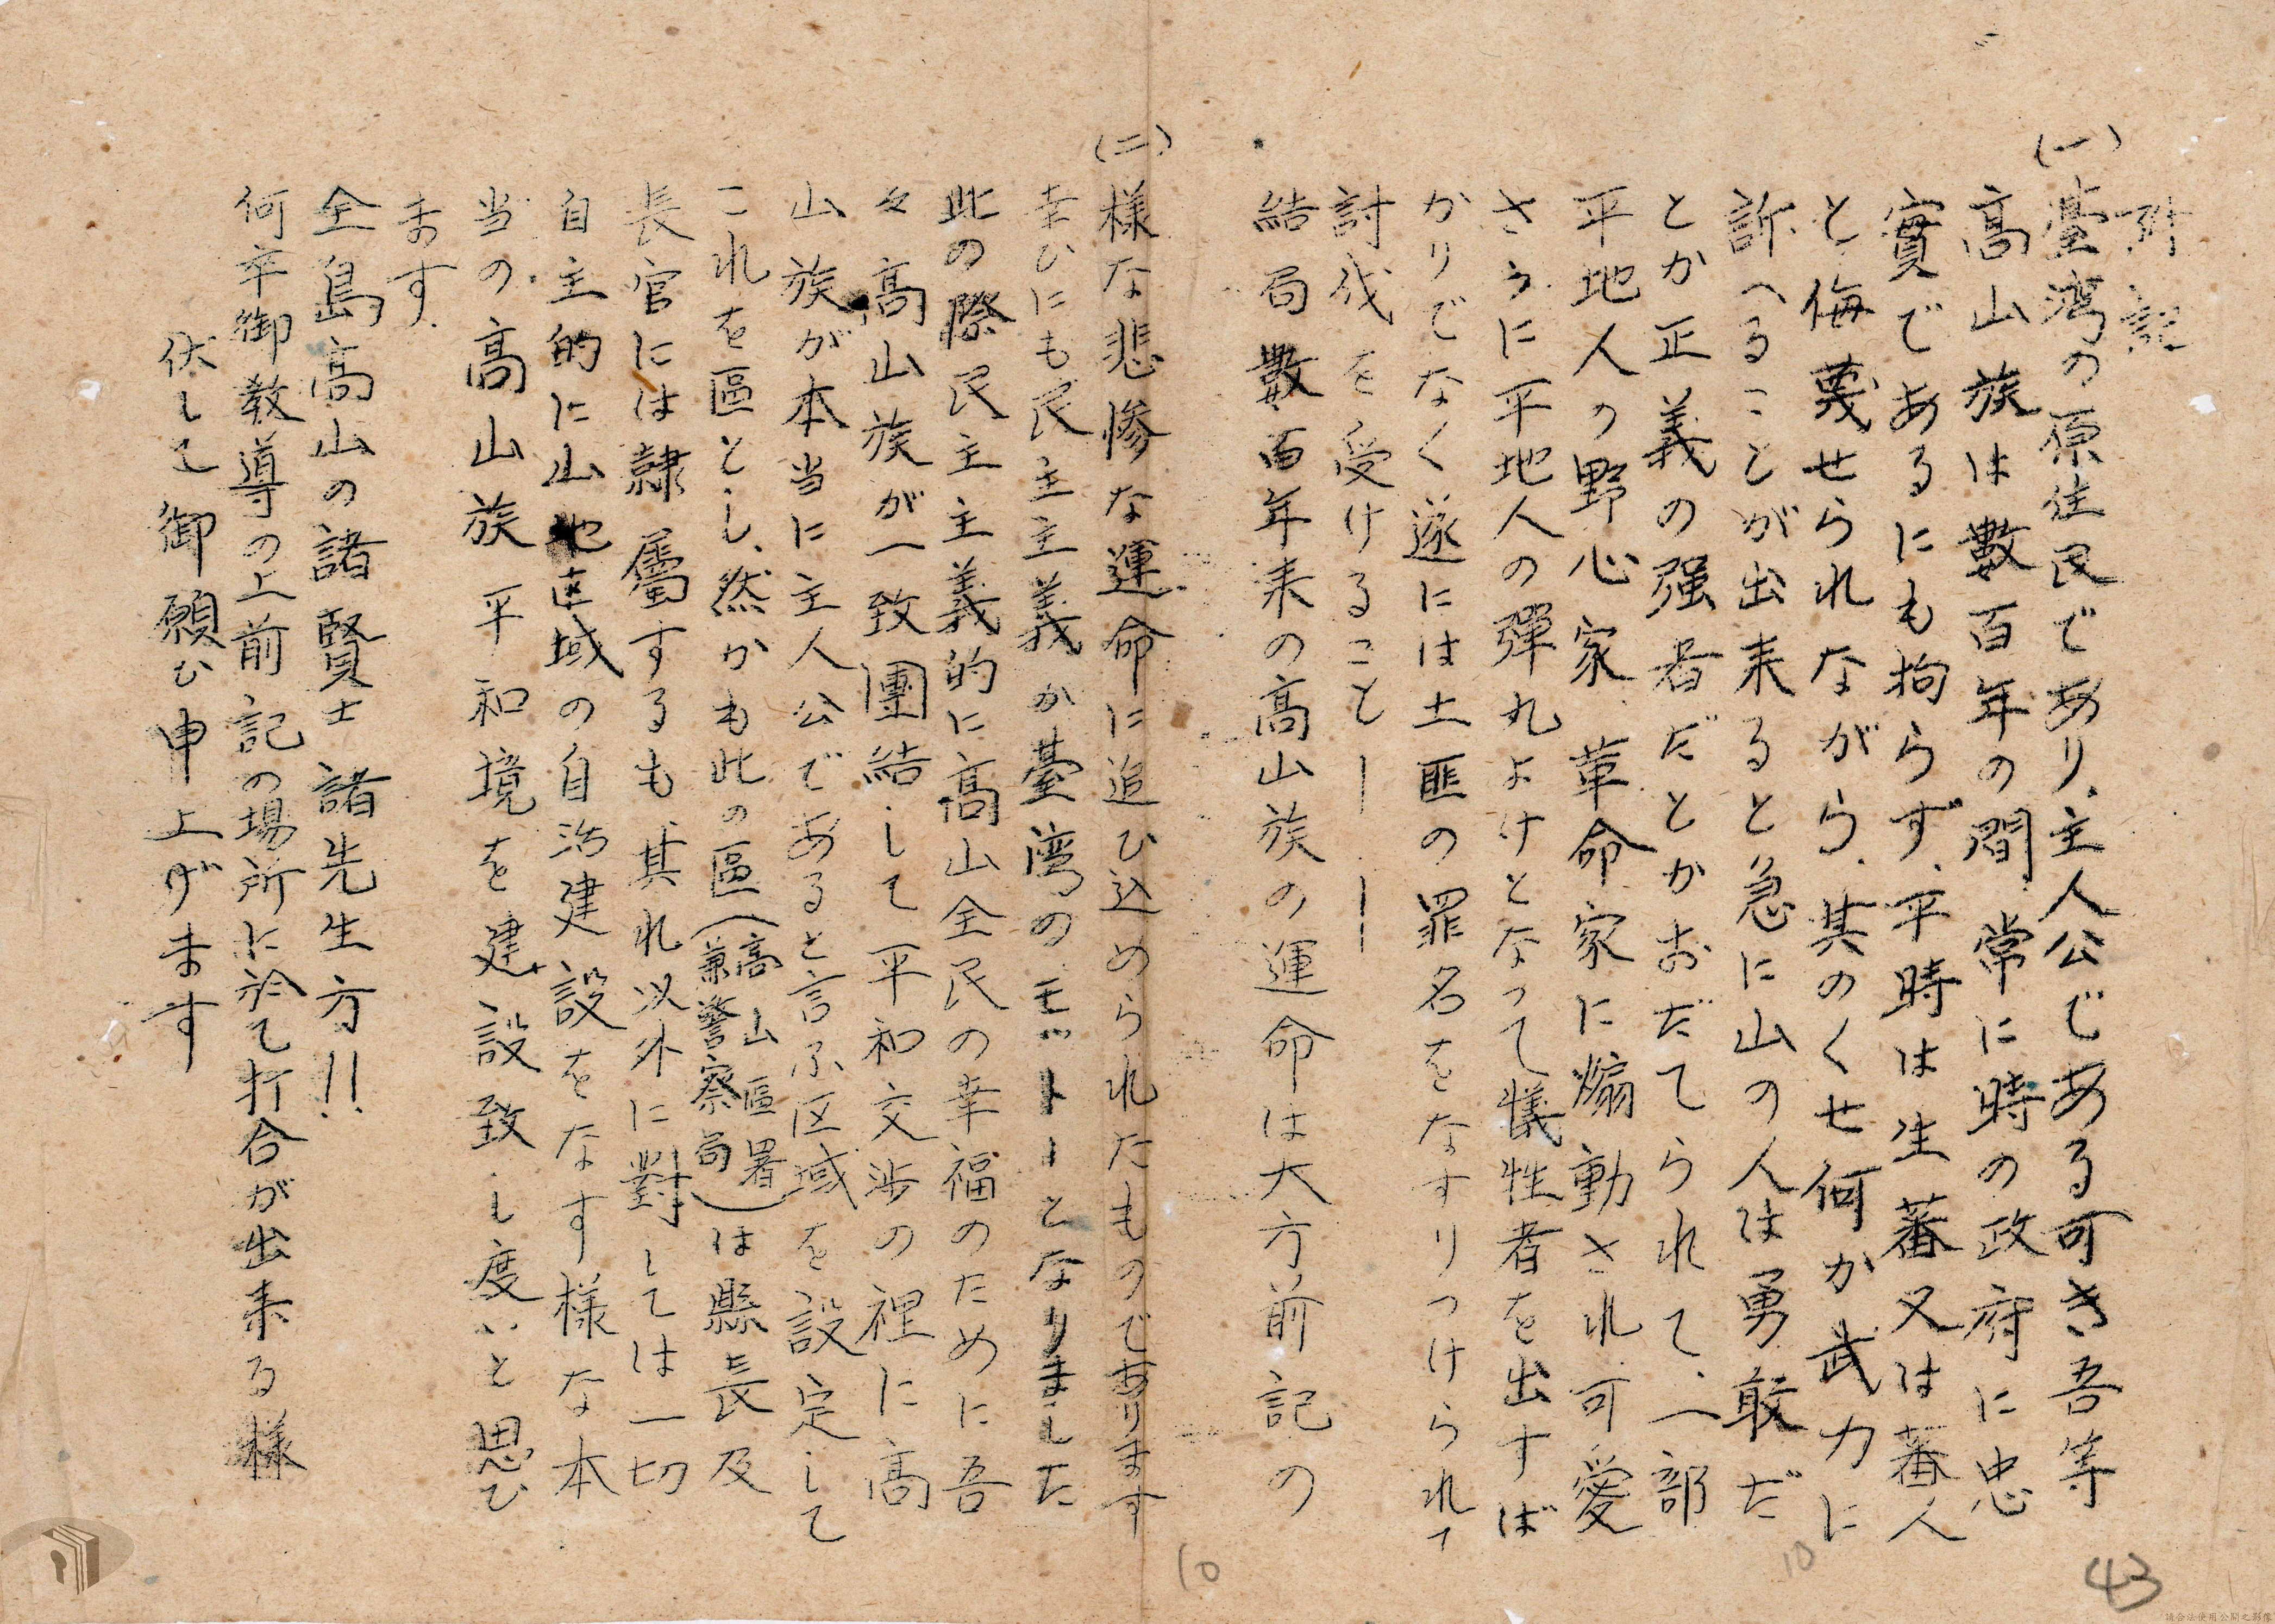 附記
(一)臺灣の原住民であり、主人公である可き吾等
高山族は數百年の間、常に時の政府に忠
實であるにも拘らず、平時は生蕃又は蕃人
と侮蔑せられながら、其のくせ何か武力に
訴へることが出来ると急に山の人は勇敢だ
とか正義の强者だとかおだてられて、一部
平地人の野心家、革命家に煽動され可愛
さうに平地人の彈丸よけとなって犠牲者を出すば
かりでなく遂には土匪の罪名をなすりつけられて
討伐を受けること———
結局數百年来の高山族の運命は大方前記の
様な悲慘な運命に追ひ込められたものであります
(二)
幸ひにも民主主義か臺灣のモットーとなりました
此の際民主主義的に高山全民の幸福のために吾
々高山族が一致團結して平和交渉の裡に高
山族が本当に主人公であると言ふ区域を設定して
これを區とし、然かも此の區(高山區署兼警察局)は縣長及
長官には隷屬するも、其れ以外に對しては一切
自主的に山地區域の自治建設をなす様な本
当の高山族平和境を建設致し度いと思ひ
ます.
全島高山の諸賢士 諸先生方!!
何卒御教導の上前記の場所に於て打合が出来る様
伏して御願ひ申上げます
10
10
43
請合法使用公開之影像